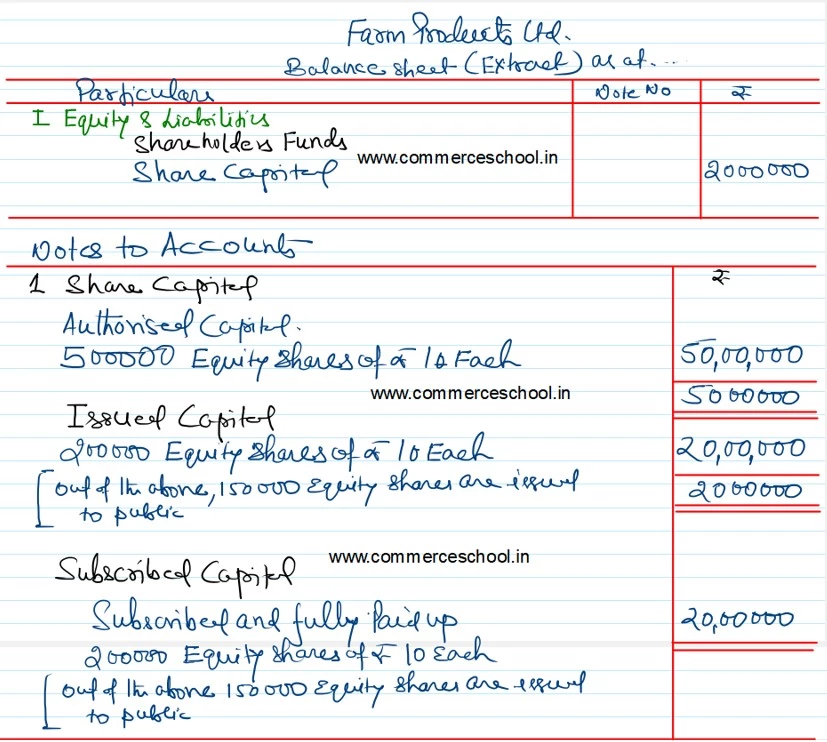 Farm Products Ltd.
Balance sheet (Extract) as at....
Particulars Note No ₹
I Equity & Liabilities
Shareholders Funds
www.commerceschool.in
Share Capital 2000000
Notes to Accounts
1 Share Capital ₹
Authorised Capital.
500000 Equity Shares of ₹ 10 Each 50,00,000
www.commerceschool.in 5000000
Issued Capital
200000 Equity Shares of ₹ 10 Each 20,00,000
[Out of the above, 150000 Equity shares are issued 2000000
to public
www.commerceschool.in
Subscribed Capital
Subscribed and fully Paid up 20,00000
200000 Equity Shares of ₹ 10 Each
[Out of the above 150000 Equity shares are issued
to public